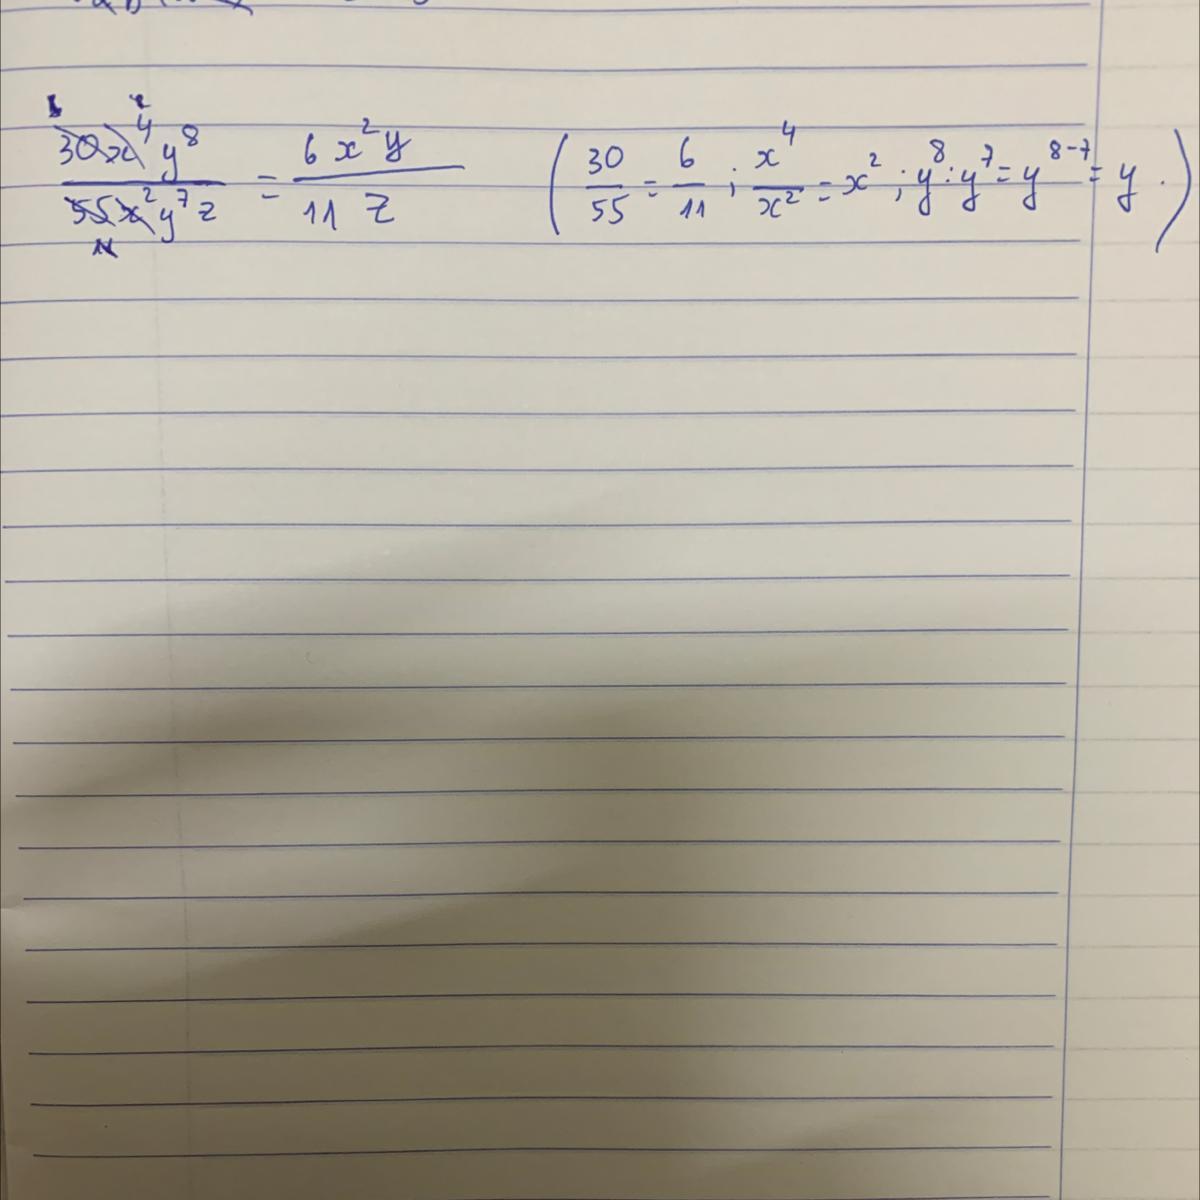 6 2
30x⁴y⁸ / 55x²y⁷z = 6x²y / 11z (30/55 = 6/11 ; x⁴/x² = x² ; y⁸ : y⁷ = y⁸⁻⁷ = y .)
11